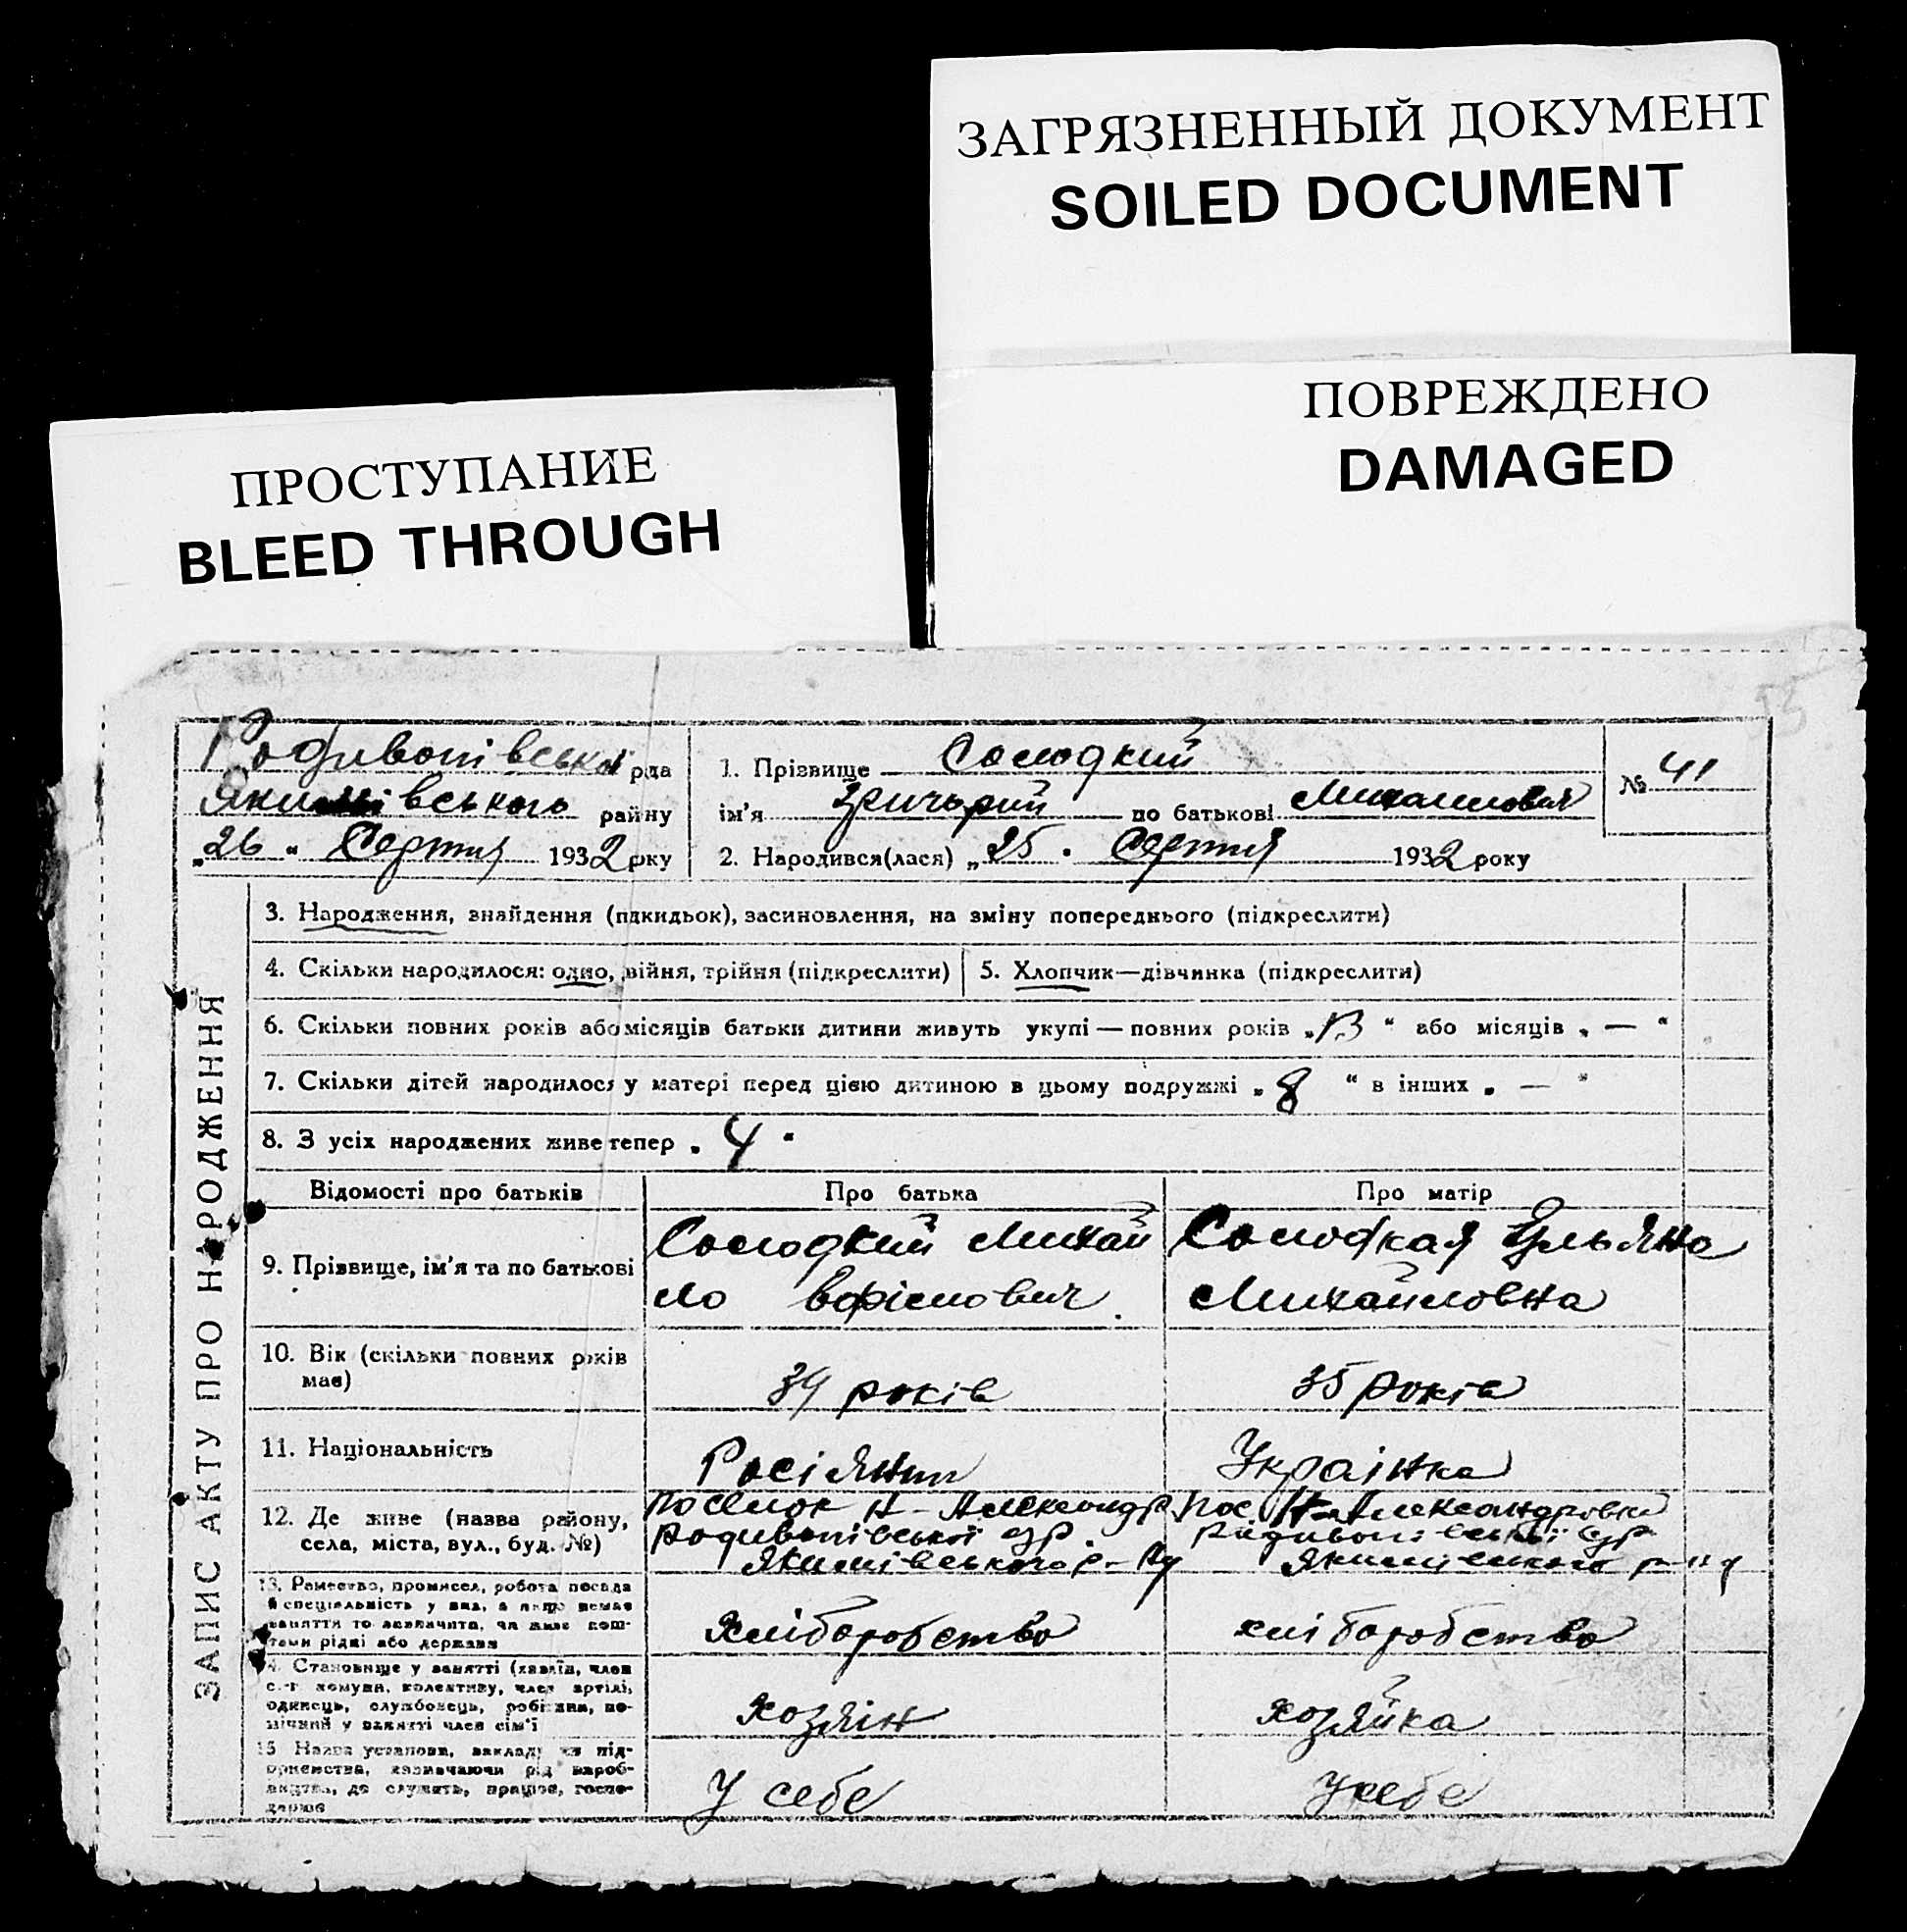 ЗАГРЯЗНЕННЫЙ ДОКУМЕНТ
SOILED DOCUMENT
ПОВРЕЖДЕНО
DAMAGED
ПРОСТУПАНИЕ
BLEED THROUGH
55
Родивонівської рда
Якимівського району
„26“ Серпня 1932 року
1. Прізвище Солодкий
ім'я Григорий по батькові Михайлович
2. Народився(лася) „25“ Серпня 1932 року
№ 41
ЗАПИС АКТУ ПРО НАРОДЖЕННЯ
3. Народження, знайдення (підкидьок), засиновлення, на зміну попереднього (підкреслити)
4. Скільки народилося: одно, двійня, трійня (підкреслити)
5. Хлопчик—дівчинка (підкреслити)
6. Скільки повних років або місяців батьки дитини живуть укупі — повних років „13“ або місяців „—“
7. Скільки дітей народилося у матері перед цією дитиною в цьому подружжі „8“ в інших „—“
8. З усіх народжених живе тепер „4“
Відомості про батьків Про батька Про матір
9. Прізвище, ім'я та по батькові
Солодкий Михай
ло
Солодкая Ульяна
Михайловна
10. Вік (скільки повних років
має)
34 років
35 років
11. Національність
Росіянин
Українка
12. Де живе (назва району,
села, міста, вул., буд. №)
поселок Н-Александр
Родивонівської с/р.
Якимівського р-ну
пос Н-Александровка
Родивонівської с/р
Якимівського р-ну
13. Ремество, промисел, робота посада
й спеціяльність у них, а якщо немає
заняття то зазначити, чи живе кош-
тами рідні або держави
хліборобство
хліборобство
14. Становище у занятті (хазяїн, член
с.-г комуни, колективу, член артілі,
одинець, службовець, робітник, по-
мічний у занятті член сім'ї
хозяін
хозяйка
15 Назва установи, закладу чи під-
приємства, зазначаючи рід вироб-
ництва, де служить, працює, госпо-
дарює
У себе
У себе